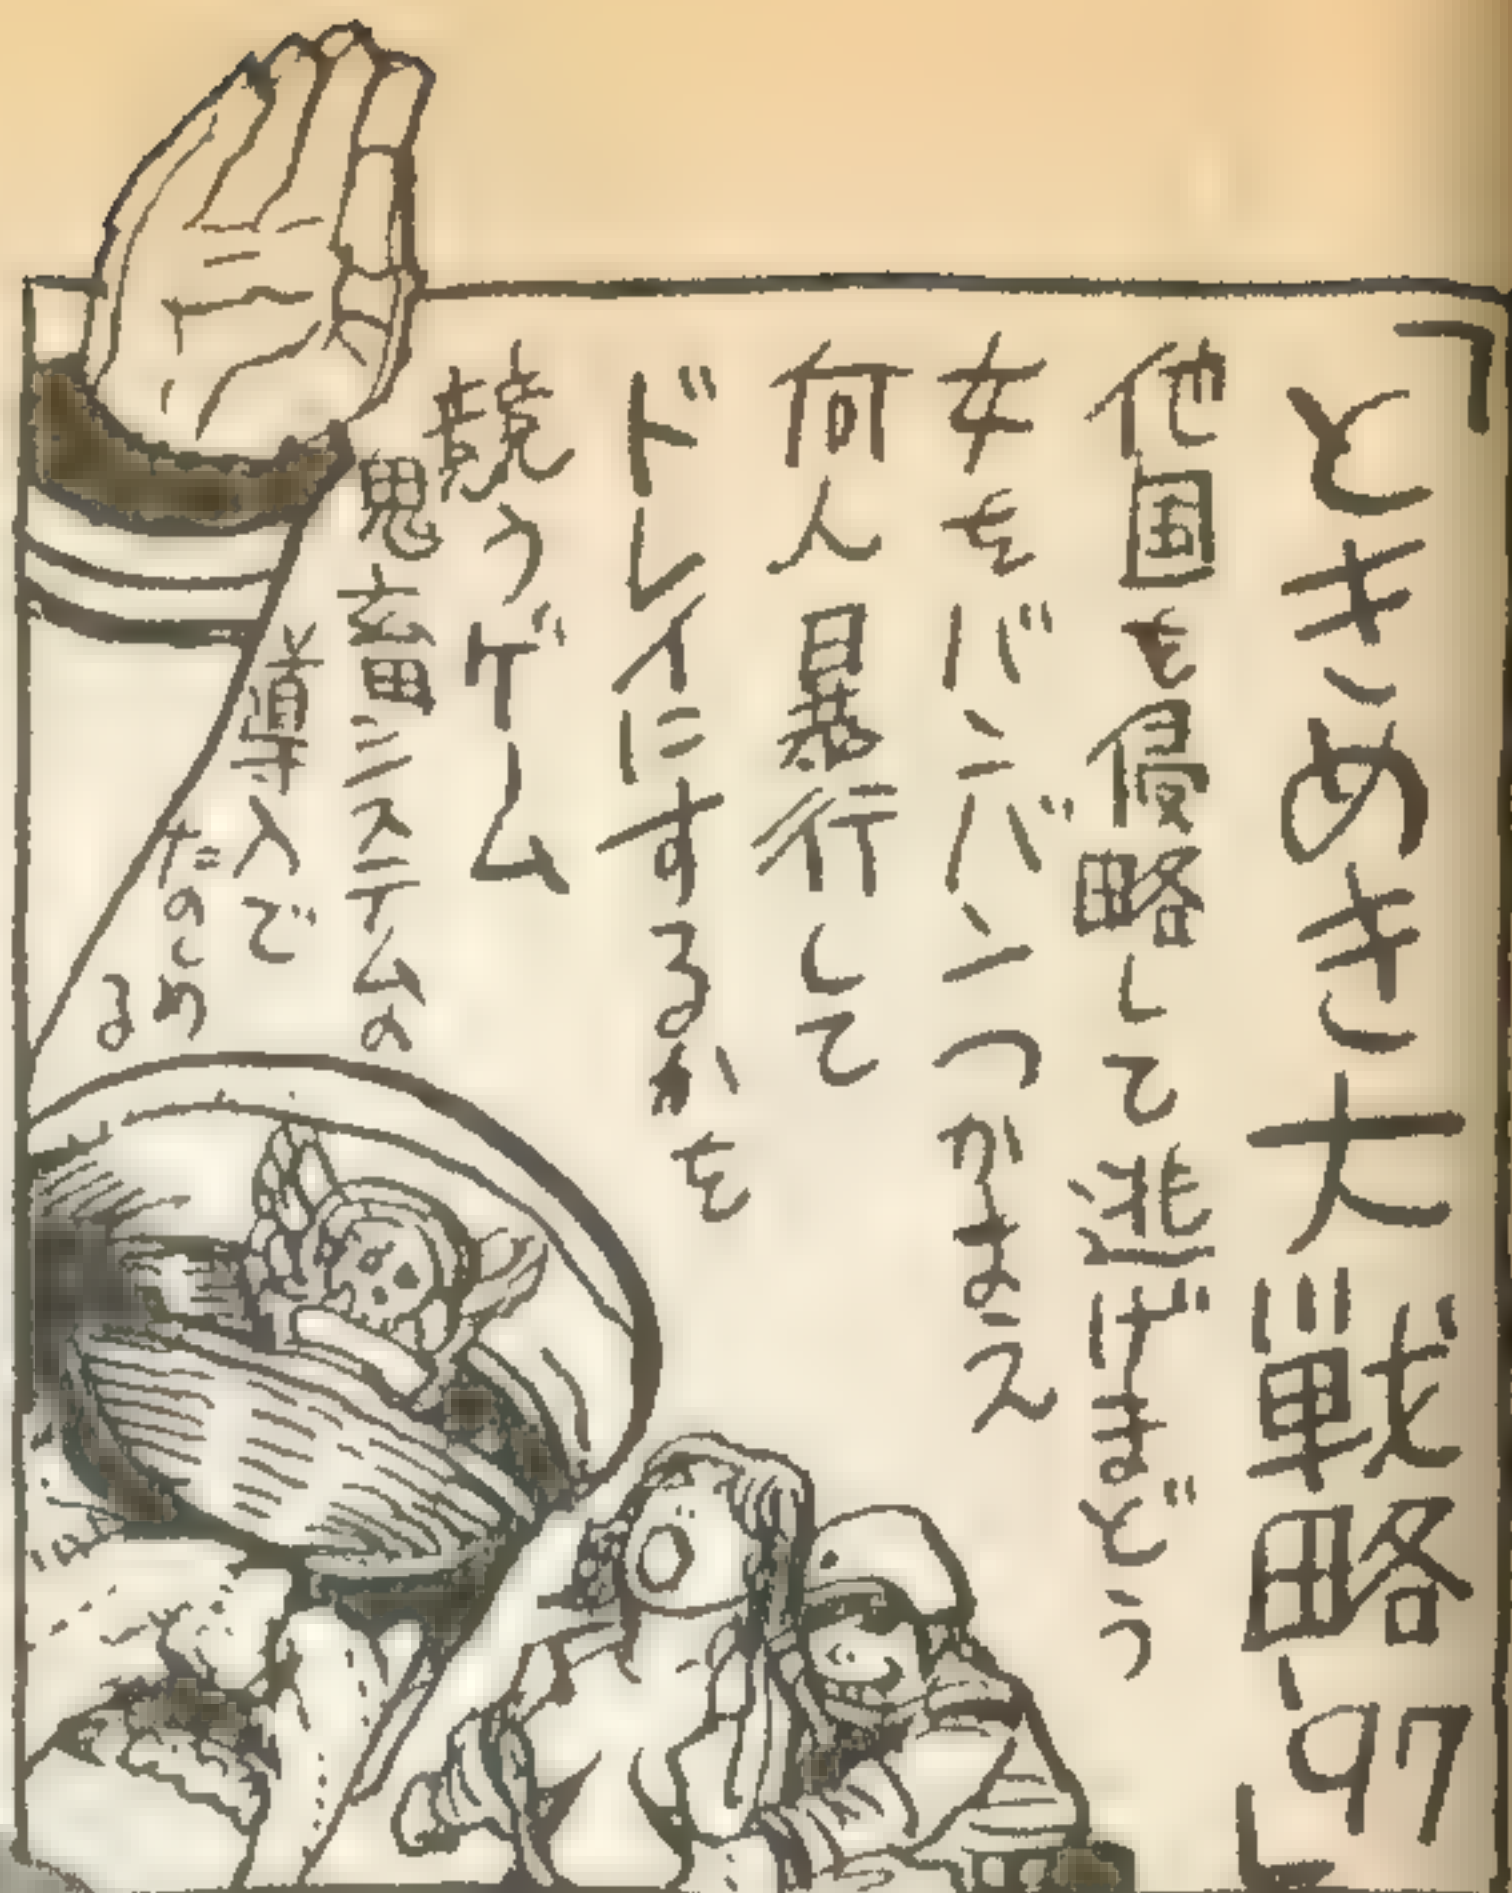 「ときめき大戦略'97」
他国を侵略して逃げまどう
女をバンバンつかまえ
何人暴行して
ドレイにするかを
競うゲーム
鬼畜システムの
導入で
たのしめ
る